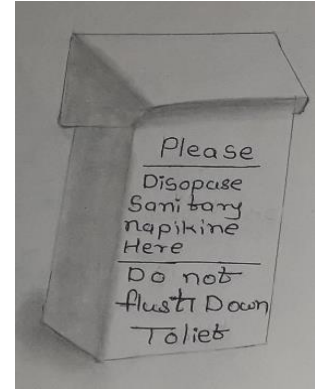 Please
Disopase
Sanitary
napikine
Here
Do not
flusti Down
Toliet